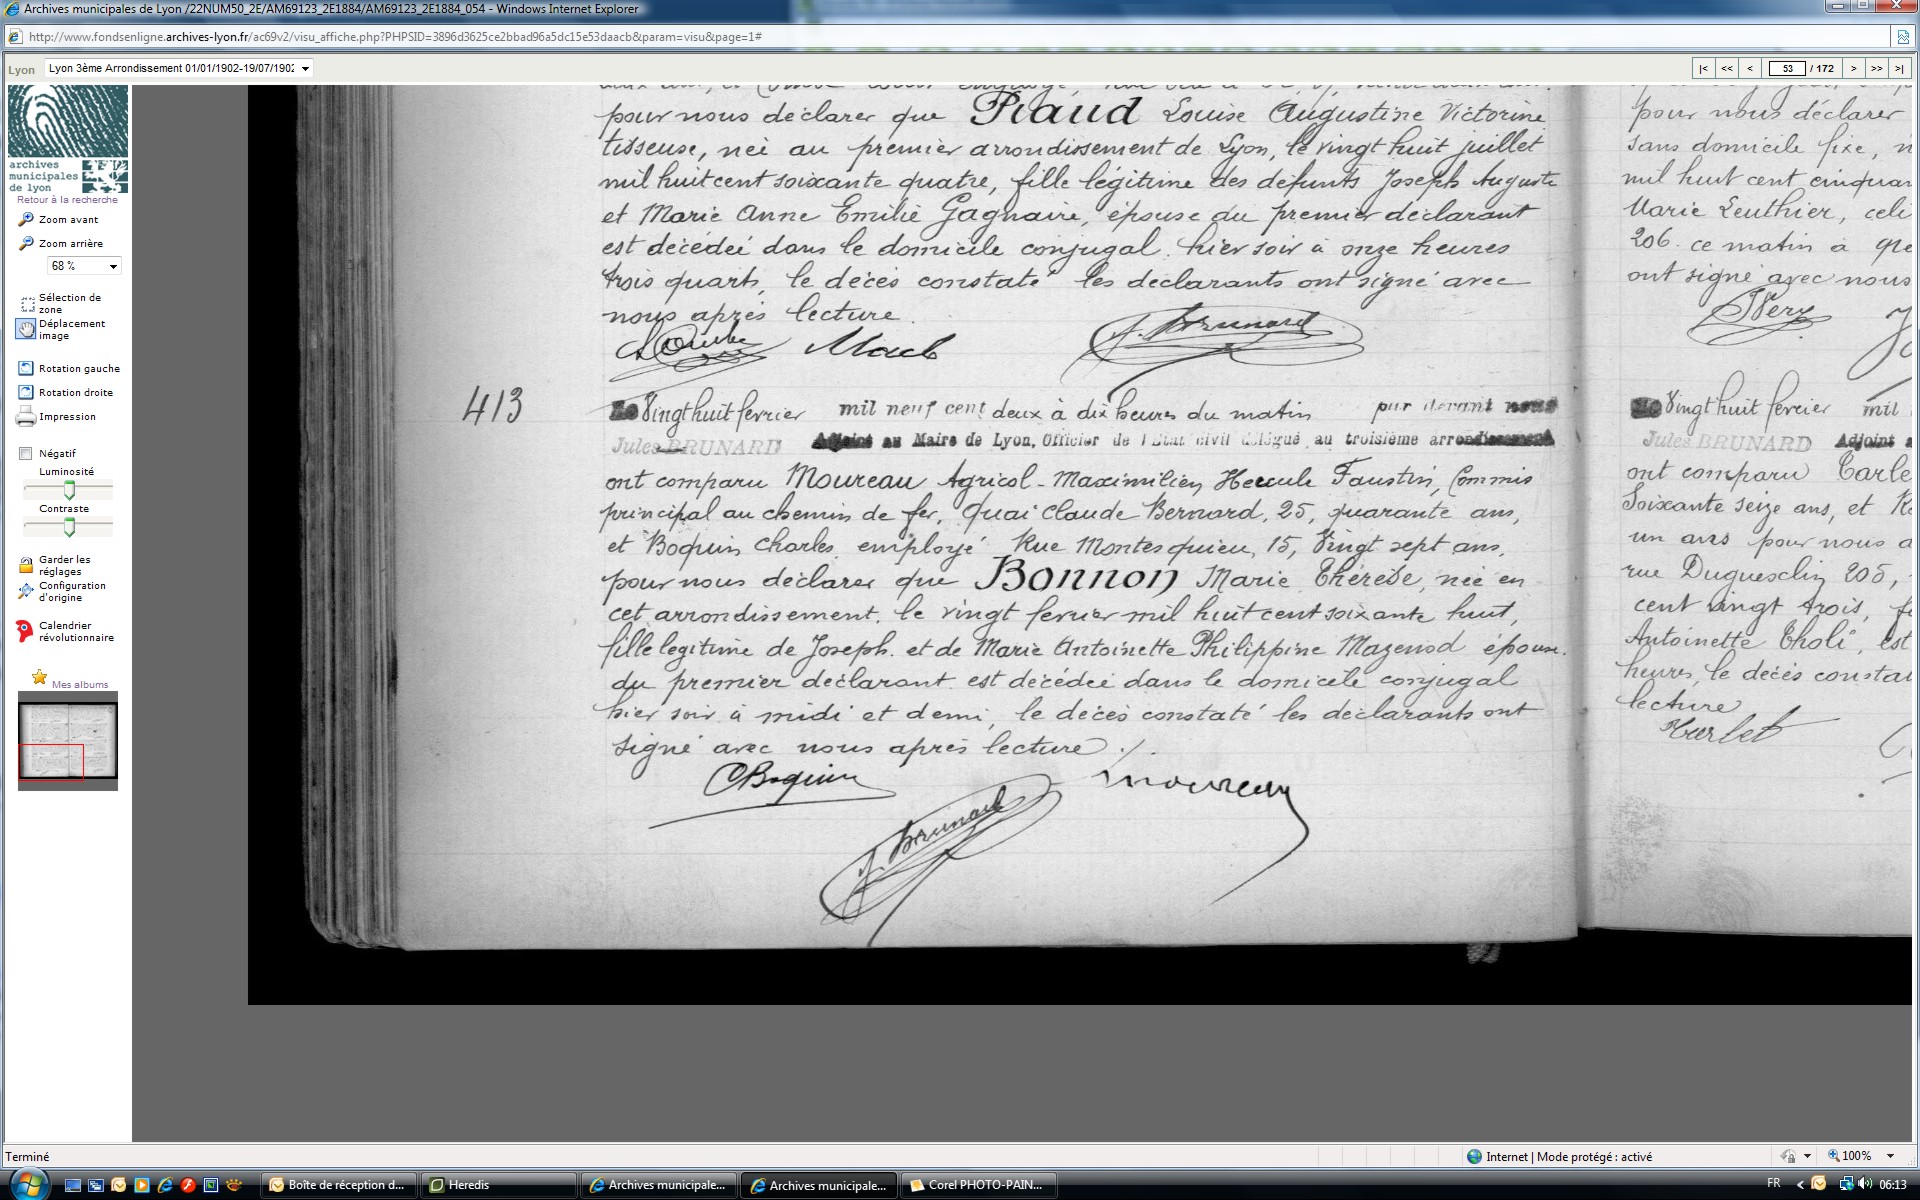 Archives municipales de Lyon /22NUM50_2E/AM69123_2E1884/AM69123_2E1884_054 - Windows Internet Explorer
http://www.fondsenligne.archives-lyon.fr/ac69v2/visu_affiche.php?PHPSID=3896d3625ce2bbad96a5dc15e53daacb&param=visu&page=1#
Lyon
Lyon 3ème Arrondissement 01/01/1902-19/07/1902
|< << < 53 / 172 > >> >|
archives
municipales
de lyon
Retour à la recherche
Zoom avant
Zoom arrière
68 %
Sélection de
zone
Déplacement
image
Rotation gauche
Rotation droite
Impression
Négatif
Luminosité
Contraste
Garder les
réglages
Configuration
d'origine
Calendrier
révolutionnaire
Mes albums
pour nous déclarer que Piaud Louise Augustine Victorine
tisseuse, née au premier arrondissement de Lyon, le vingt huit juillet
mil huit cent soixante quatre, fille légitime des défunts Joseph Auguste
et Marie Anne Emilie Gagnaire, épouse du premier déclarant
est décédée dans le domicile conjugal hier soir à onze heures
trois quarts, le décès constaté les déclarants ont signé avec
nous après lecture.
J. Brunard
413
Le Vingt huit fevrier mil neuf cent deux à dix heures du matin par devant nous
Jules BRUNARD Adjoint au Maire de Lyon, Officier de l'Etat civil délégué au troisième arrondissement
ont comparu Moureau Agricol-Maximilien Hercule Faustin, Commis
principal au chemin de fer, Quai Claude Bernard, 25, quarante ans,
et Boquin Charles, employé Rue Montesquieu, 15, Vingt sept ans,
pour nous déclarer que Bonnon Marie Thérèse, née en
cet arrondissement, le vingt fevrier mil huit cent soixante huit,
fille legitime de Joseph et de Marie Antoinette Philippine Mazenod épouse
du premier déclarant est décédée dans le domicile conjugal
hier soir à midi et demi, le décès constaté les déclarants ont
signé avec nous après lecture ./.
CBoquin
Moureau
J. Brunard
pour nous déclarer
sans domicile fixe,
mil huit cent
Marie Leuthier,
206. ce matin à
ont signé avec nous
Le Vingt huit fevrier mil
Jules BRUNARD Adjoint
ont comparu
Soixante seize ans, et
un ans pour nous
rue Duguesclin 205,
cent vingt trois,
Antoinette Choli, est
heures, le décès
lecture
Terminé
Internet | Mode protégé : activé
100%
Boîte de réception d...
Heredis
Archives municipale...
Archives municipale...
Corel PHOTO-PAIN...
FR
06:13